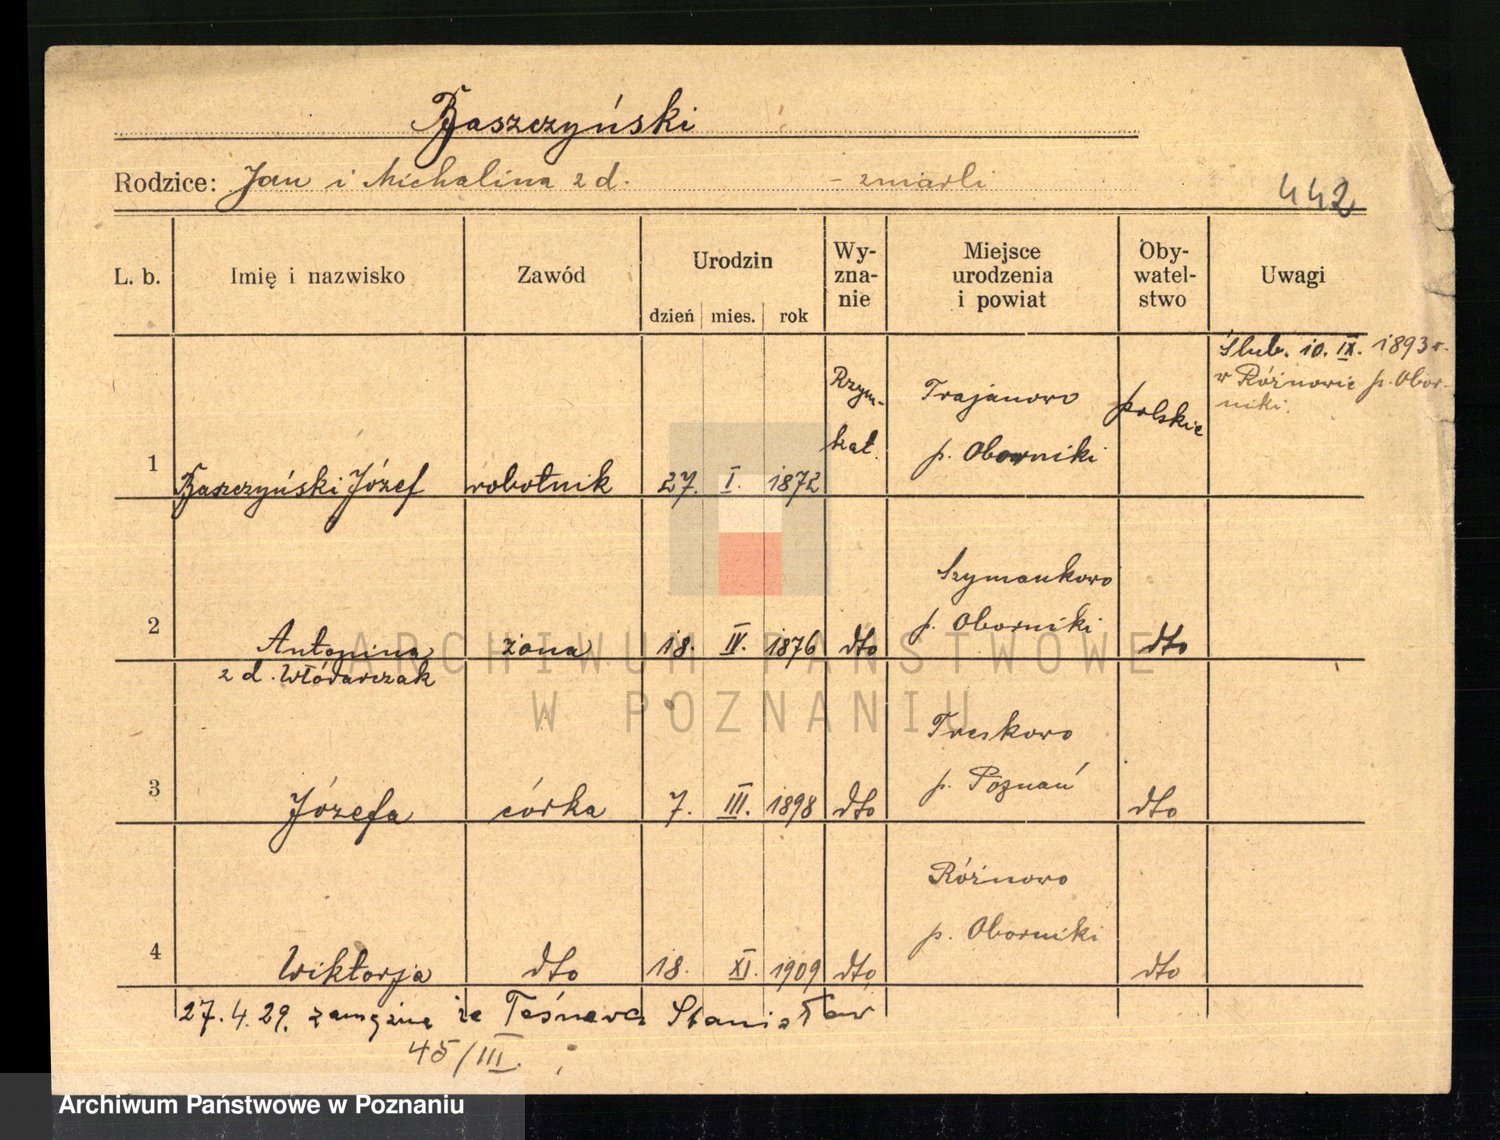 Baszczyński
Rodzice: Jan i Michalina z d. - zmarli
442
L. b. Imię i nazwisko Zawód Urodzin dzień mies. rok Wy-zna-nie Miejsce urodzenia i powiat Oby-watel-stwo Uwagi
Ślub. 10. IX. 1893 r.
w Różnowie p. Obor-
niki.
Rzym.-
kat.
Trajanowo
p. Oborniki
polskie
1 Baszczyński Józef robotnik 27. I. 1872
Szymankowo
p. Oborniki
2 Antonina żona 18. IV. 1876 dto dto
z d. Włódarczak
Treskowo
p. Poznań
3 Józefa córka 7. III. 1898 dto dto
Różnowo
p. Oborniki
4 Wiktorja dto 18. XI. 1909 dto dto
27.4.29. zamężna ze Stanisław
45/III.
ARCHIWUM PAŃSTWOWE
W POZNANIU
Archiwum Państwowe w Poznaniu